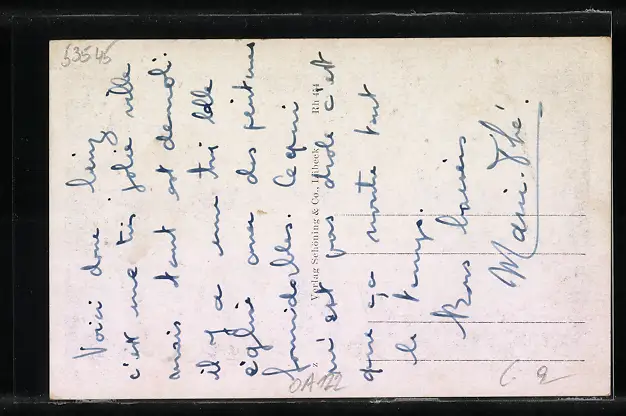 Voici donc Linz
c'est une très jolie ville
mais tout est démoli.
il y a une très belle
église avec des peintures
formidables. Ce qui
n'est pas drôle c'est
que ça monte tout
le temps.
Bons baisers
Marie-Thé.
Verlag Schöning & Co., Lübeck
Rh 434
53545
OA 122